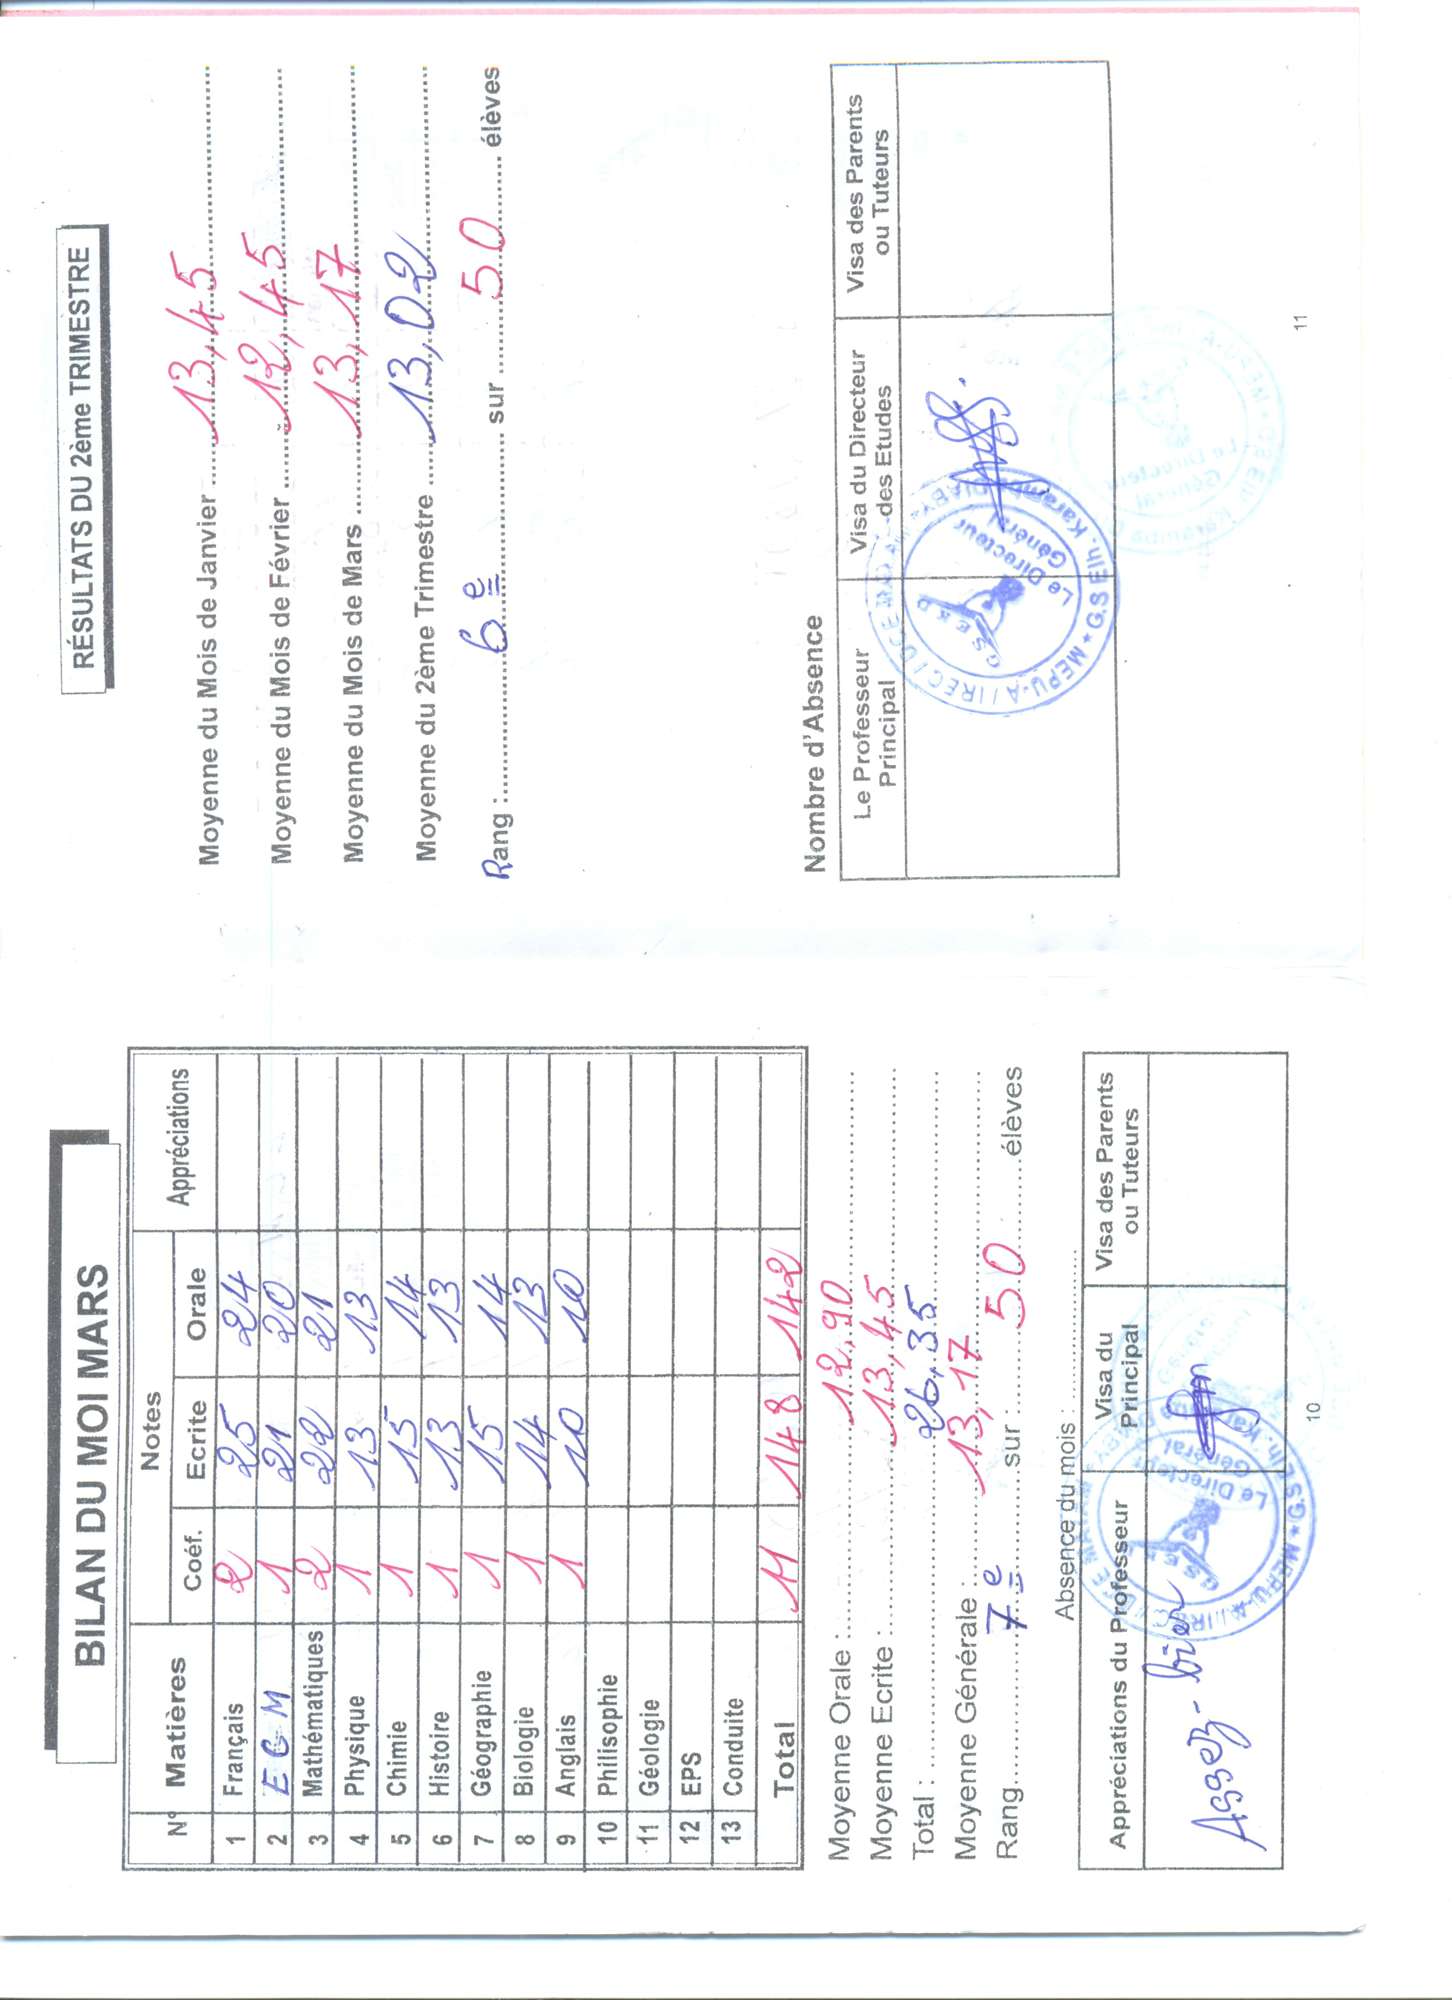 BILAN DU MOI MARS
N° Matières Notes Appréciations
Coéf. Ecrite Orale
1 Français 2 25 24
2 E C M 1 21 20
3 Mathématiques 2 22 21
4 Physique 1 13 13
5 Chimie 1 15 14
6 Histoire 1 13 13
7 Géographie 1 15 14
8 Biologie 1 14 13
9 Anglais 1 10 10
10 Philisophie
11 Géologie
12 EPS
13 Conduite
Total 11 148 142
Moyenne Orale : 12,90
Moyenne Ecrite : 13,45
Total : 26,35
Moyenne Générale : 13,17
Rang 7e sur 50 élèves
Absence du mois :
Appréciations du Professeur
Visa du Principal
Visa des Parents ou Tuteurs
Assez-bien
Le Directeur
Général
10
RÉSULTATS DU 2ème TRIMESTRE
Moyenne du Mois de Janvier 13,45
Moyenne du Mois de Février 12,45
Moyenne du Mois de Mars 13,17
Moyenne du 2ème Trimestre 13,02
Rang : 6e sur 50 élèves
Nombre d'Absence
Le Professeur Principal
Visa du Directeur des Etudes
Visa des Parents ou Tuteurs
G S E K D
Le Directeur
Général
MEPU-A / IREC / DCE
G.S Elh. Karamba DIABY
11